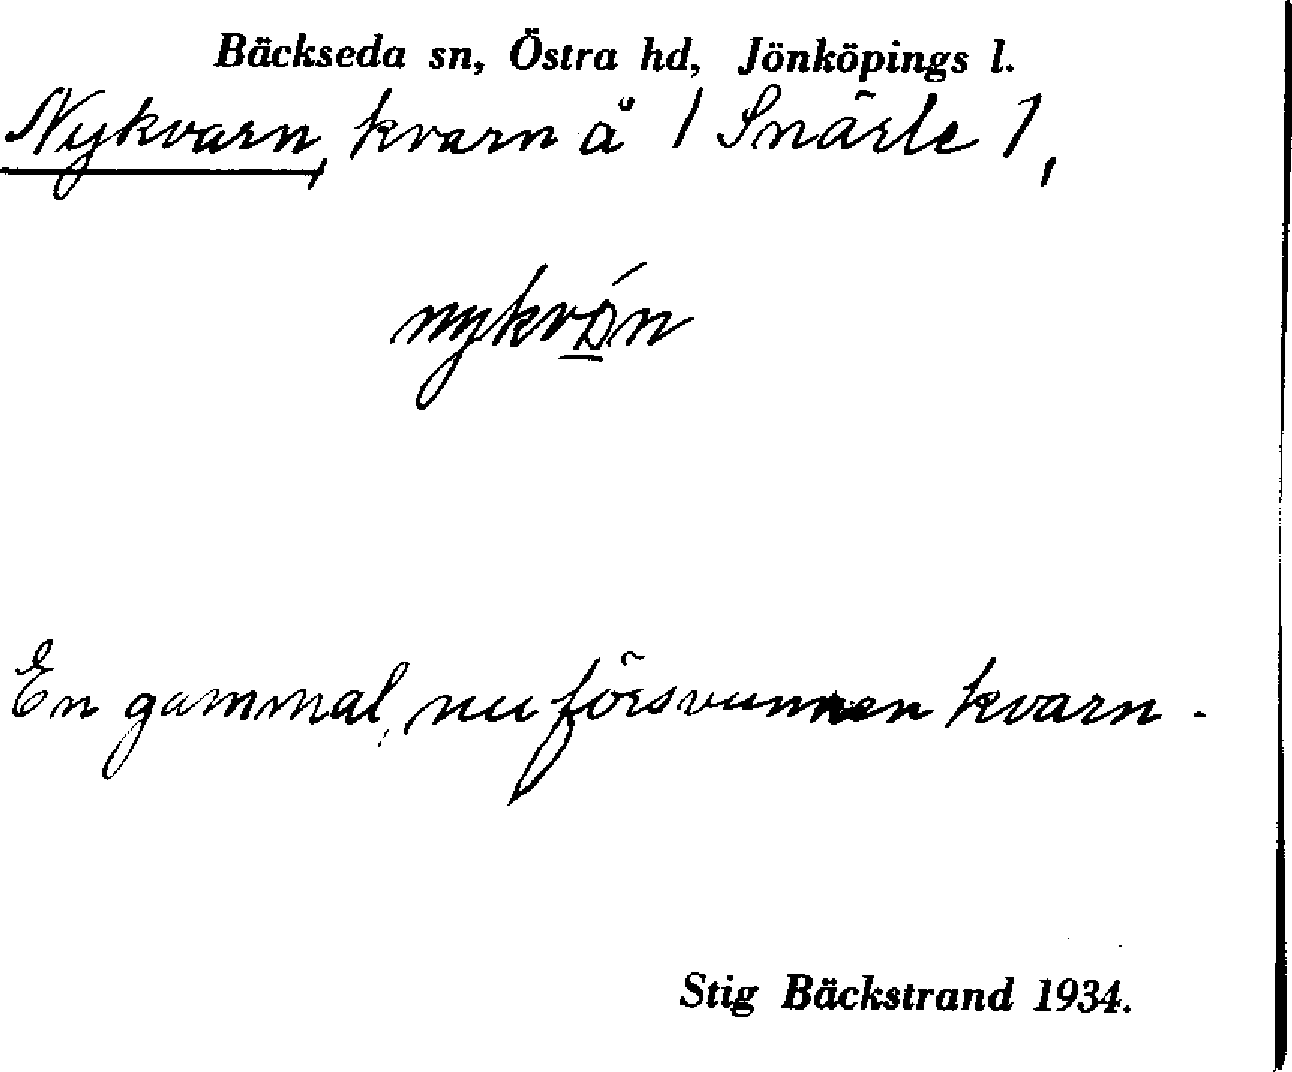 Bäckseda sn, Östra hd, Jönköpings l.
Nykvarn, kvarn å / Snärle 1,
En gammal, nu försvunnen kvarn.
Stig Bäckstrand 1934.